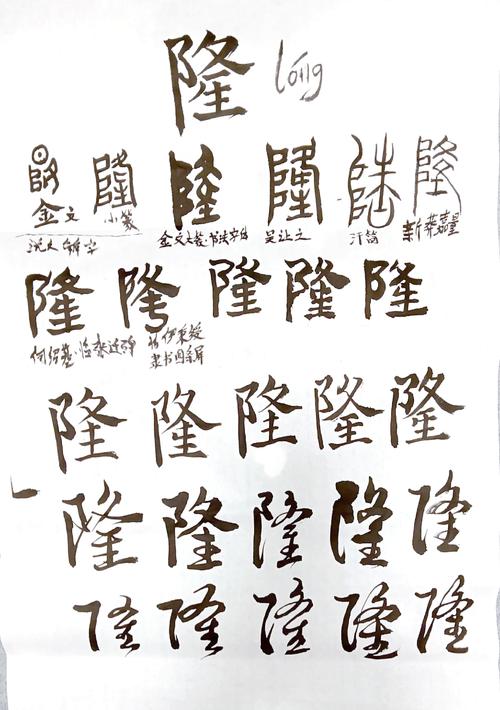 隆 lóng
隆 隆 隆 隆 隆 隆
金文 小篆 金文大篆·书法字体 吴让之 汗简 新莽嘉量
说文解字
隆 隆 隆 隆 隆
何绍基·临张迁碑 伊秉绶
隶书四条屏
隆 隆 隆 隆 隆
隆 隆 隆 隆 隆
隆 隆 隆 隆 隆